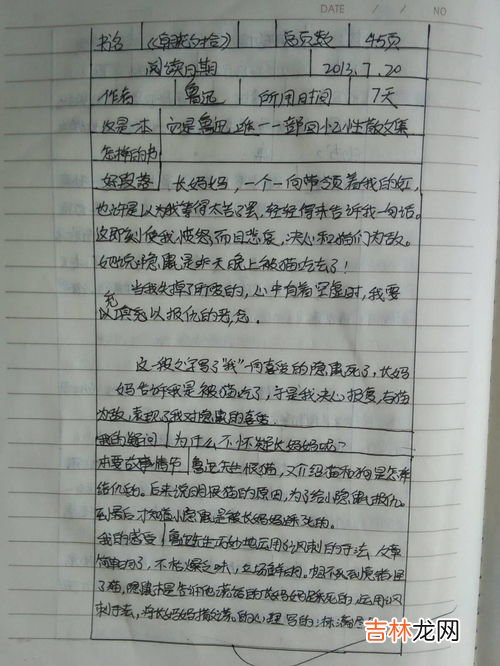 DATE / / NO
书名 《朝花夕拾》 总页数 45页
阅读日期 2013.7.20
作者 鲁迅 所用时间 7天
这是一本 它是鲁迅唯一一部回忆性散文集
怎样的书
好段落 长妈妈，一个一向带领着我的女工，
也许是以为我等得太苦了罢，轻轻得来告诉我一句话。
这即刻使我愤怒而且悲哀，决心和猫们为敌。
她说：隐鼠是昨天晚上被猫吃去了！
当我失掉了所爱的，心中有着空虚时，我要
充
以填充以报仇的恶念。
这一段文字写了“我”一向喜爱的隐鼠死了，长妈
妈告诉我是被猫吃了，于是我决心报复，与猫
为敌，表现了我对隐鼠的喜爱。
我的疑问 为什么不怀疑长妈妈呢？
主要故事情节 鲁迅先生恨猫，又介绍猫和狗是怎样
结仇的。后来说明恨猫的原因，为了给小隐鼠报仇。
到最后才知道小隐鼠是被长妈妈踩死的。
我的感受 鲁迅先生巧妙地运用讽刺的手法，文章
了猫，隐鼠
吉林龙网